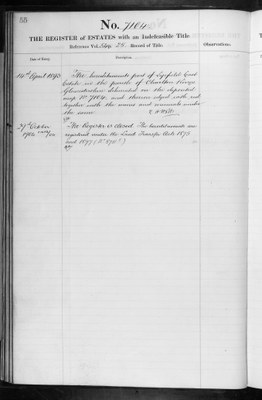 58
No. 7104
THE REGISTER of ESTATES with an Indefeasible Title.
Reference Vol. 58 Record of Title.
Observations.
Date of Entry.
Description.
14th April 1893
The hereditaments part of Lyefield Court
Estate in the parish of Charlton Kings
Gloucestershire delineated on the deposited
map No 7104, and thereon edged with red
together with the mines and minerals under
the same.
27th October
The Register is closed. The hereditaments are
registered under the Land Transfer Acts 1875
and 1897